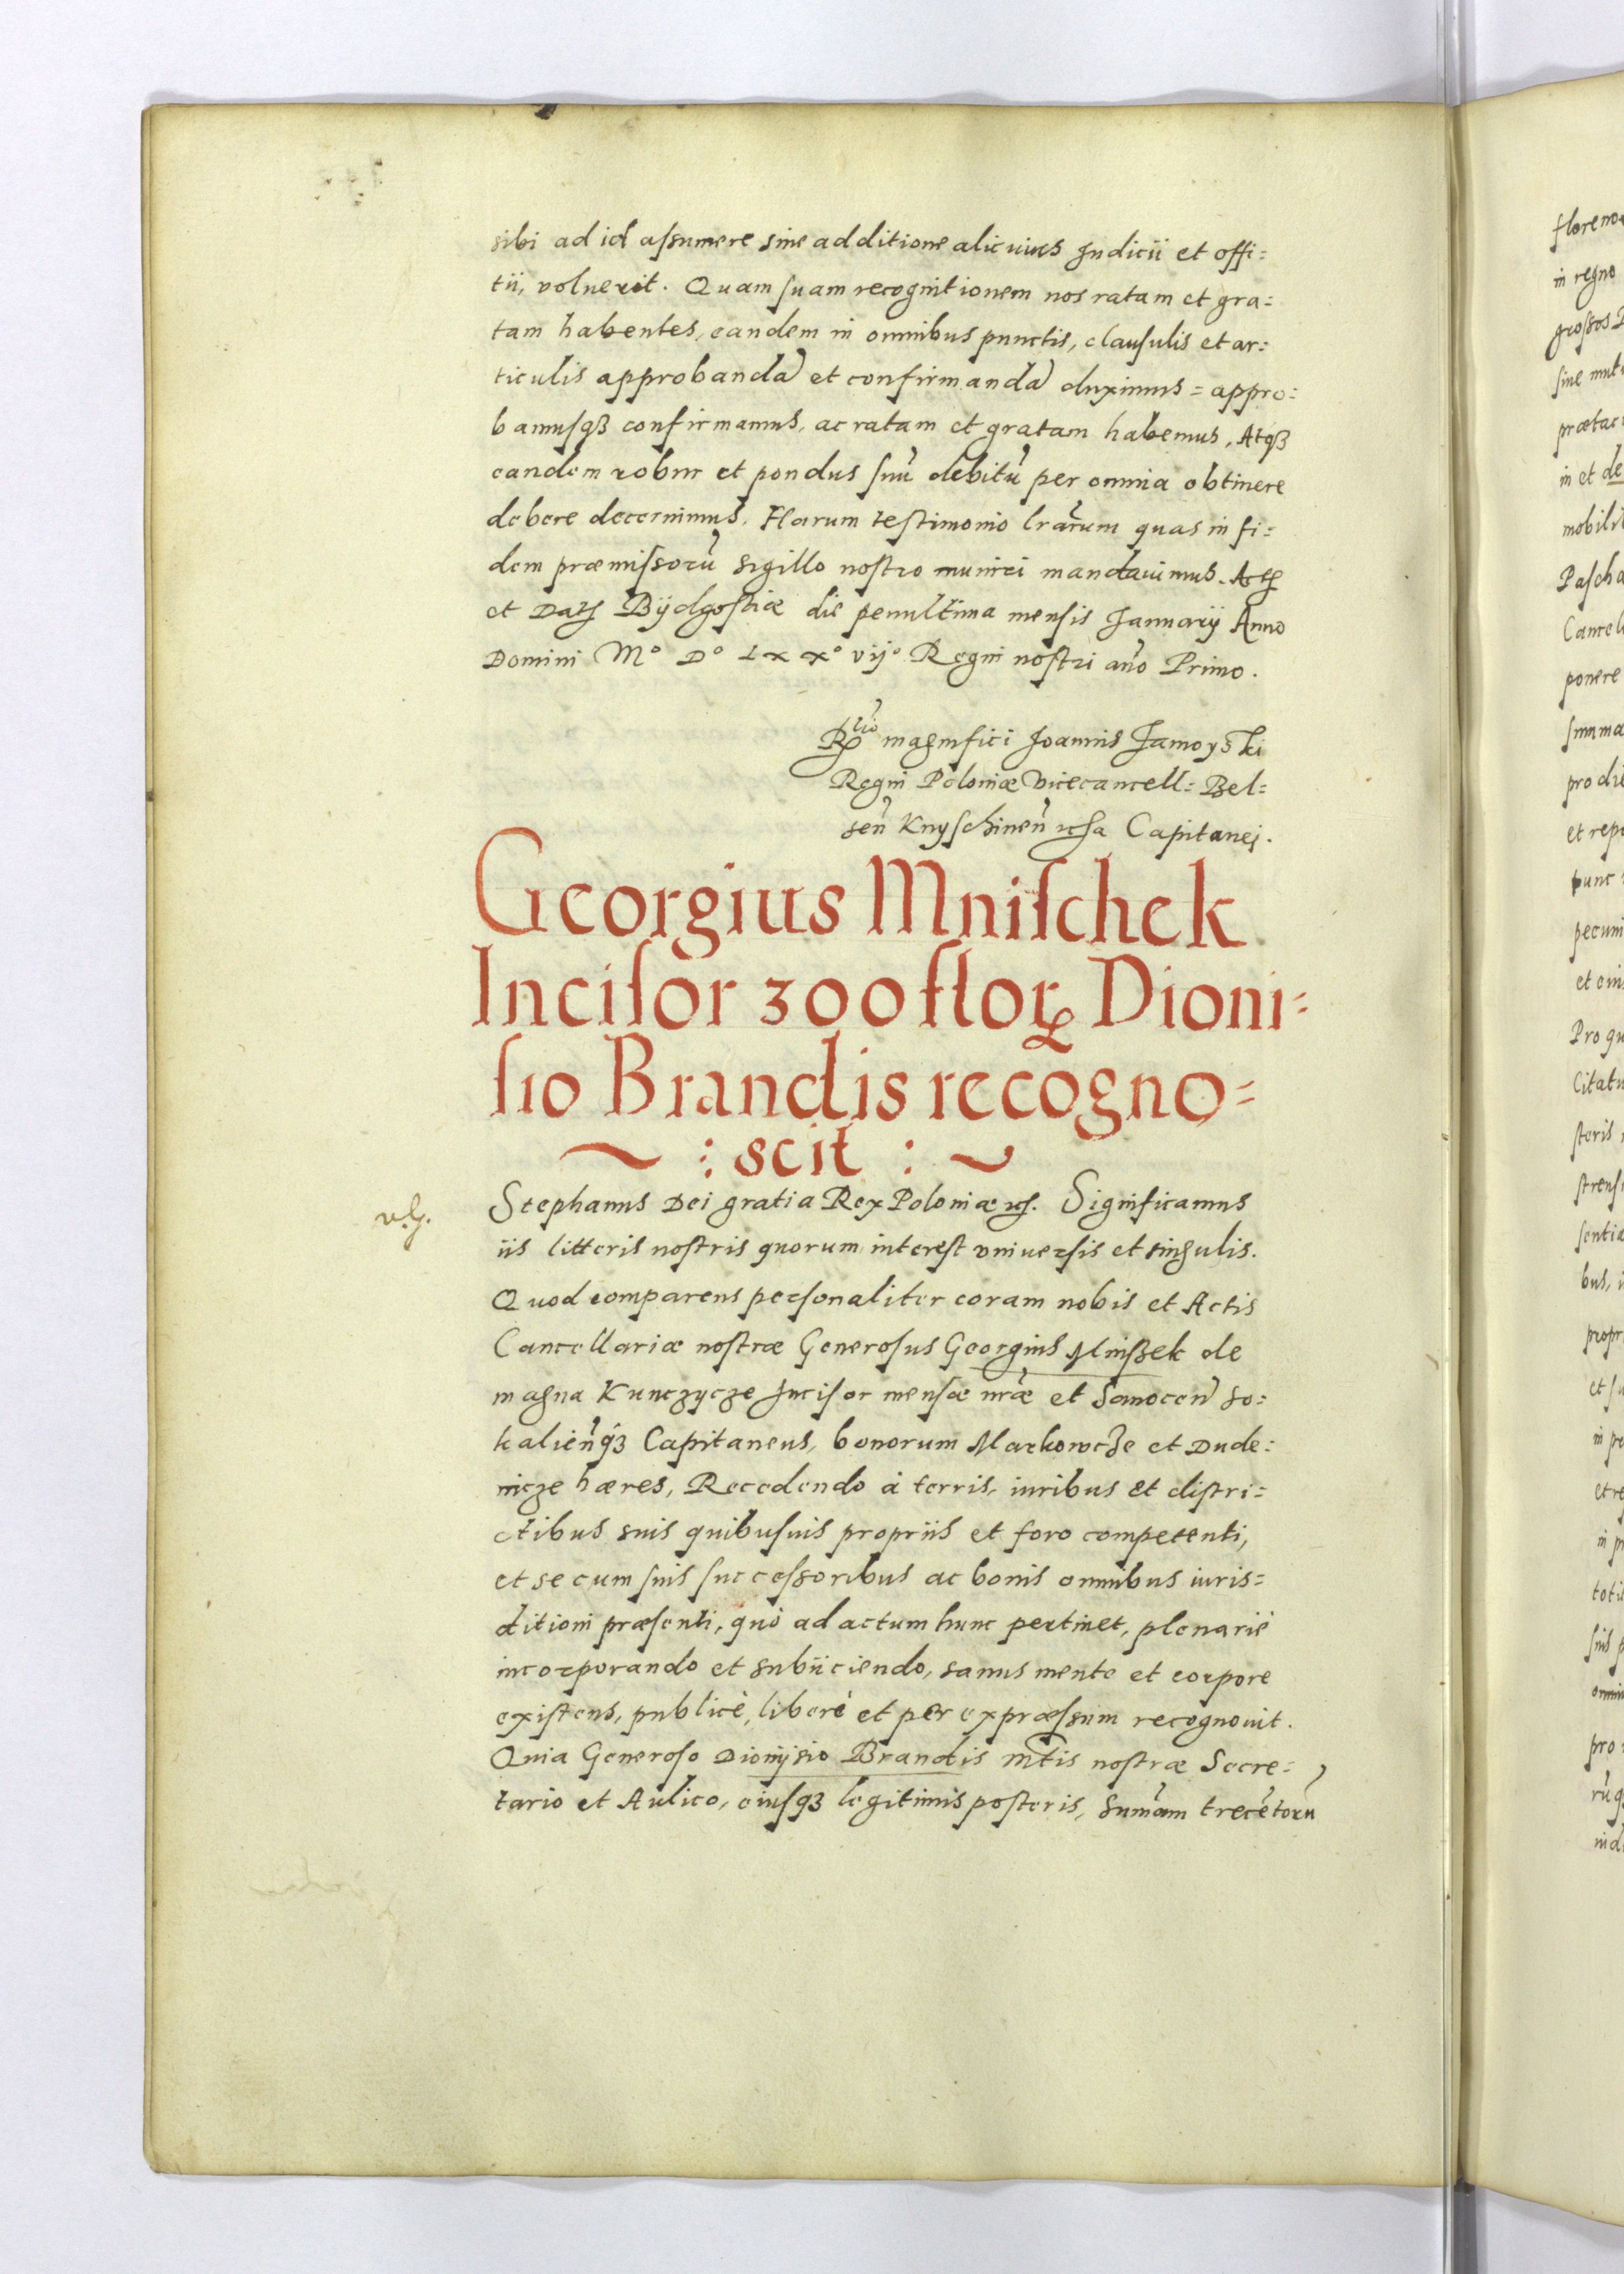 sibi ad id aſsumere sine additione alicuius Judicii et offi=
tii, voluerit. Quam ſuam recognitionem nos ratam et gra=
tam habentes, eandem in omnibus punctis, clauſulis et ar=
ticulis approbandā et confirmandā duximus = appro=
bamuſqȝ confirmamus, ac ratam et gratam habemus, Atqȝ
eandem robur et pondus ſuū debitū per omnia obtinere
debere decernimus. Harum teſtimonio lrārum quas in fi=
dem præmiſsorū sigillo noſtro muniri mandauimus. Actꝭ
et Datꝭ Bÿdgoſtiæ die penultima menſis Januarÿ Anno
Domini Mº Dº LXXº vijº Regni noſtri año Primo.
Rlio magnifici Joannis Zamoyski
Regni Poloniæ Vicecancell= Bel=
zeñ Knyſchineñ ꝛcꝭa Capitanej.
Georgius Mniſchek
Inciſor 300 floꝝ Dioni=
ſio Brandis recogno=
~ : scit : ~
Stephanus Dei gratia Rex Poloniæ ꝛcꝭ. Significamus
iis litteris noſtris quorum intereſt vniuerſis et singulis.
Quod comparens perſonaliter coram nobis et Actis
Cancellariæ noſtræ Generoſus Georgius Mniſzek de
magna Kunczycze Inciſor menſæ nr̄æ et Sanoceñ So=
kalieñqȝ Capitaneus, bonorum Markowcze et Dude=
nicze hæres, Recedendo à terris, iuribus et diſtri=
ctibus suis quibuſuis propriis et foro competenti,
et se cum ſuis ſucceſsoribus ac bonis omnibus iuris=
ditioni præſenti, quò ad actum hunc pertinet, plenariè
incorporando et subiiciendo, sanus mente et corpore
exiſtens, publicè, liberè et per expræſsum recognouit.
Quia Generoſo Dioniſio Brandis Mtis noſtræ Secre=
tario et Aulico, eiuſqȝ legitimis poſteris, sum̄am trecētorū